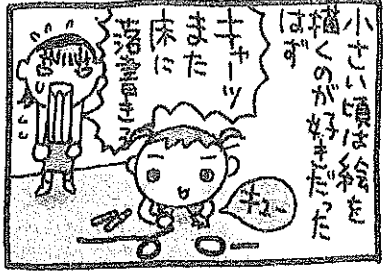 小さい頃は絵を
描くのが好きだった
はず
キャーッ
また
床に
落書きっ
キュー